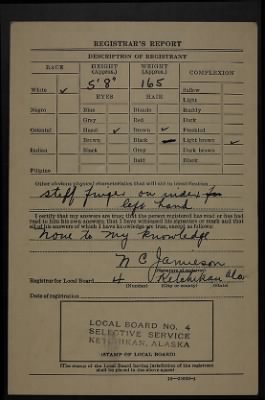 REGISTRAR'S REPORT
DESCRIPTION OF REGISTRANT
RACE
HEIGHT
(Approx.)
WEIGHT
(Approx.)
COMPLEXION
5' 8"
165
White ✓
EYES
HAIR
Sallow
Light
Negro
Blue
Blonde
Ruddy
Gray
Red
Dark
Oriental
Hazel ✓
Brown ✓
Freckled
Brown
Black
Light brown ✓
Indian
Black
Gray
Dark brown
Bald
Black
Filipino
Other obvious physical characteristics that will aid in identification
stiff finger on index
left hand
I certify that my answers are true; that the person registered has read or has had
read to him his own answers; that I have witnessed his signature or mark and that
all of his answers of which I have knowledge are true, except as follows:
None to my knowledge
N C Jamieson
(Signature of registrar)
Registrar for Local Board 4 Ketchikan Ala.
(Number) (City or county) (State)
Date of registration
LOCAL BOARD NO. 4
SELECTIVE SERVICE
KETCHIKAN, ALASKA
(STAMP OF LOCAL BOARD)
(The stamp of the Local Board having jurisdiction of the registrant
shall be placed in the above space)